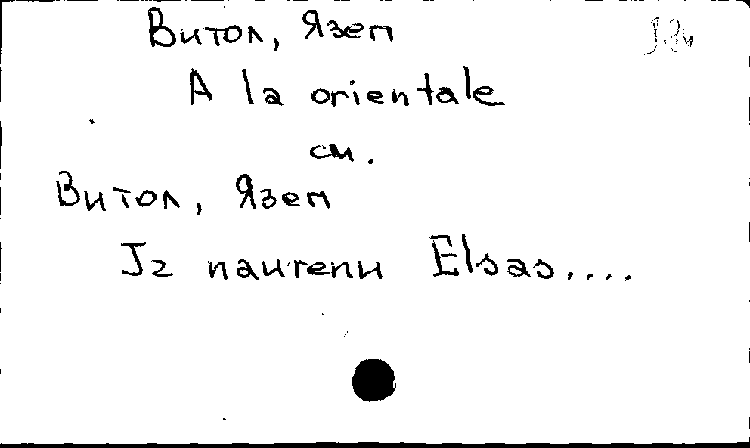 Витол, Язеп
A la orientale
см.
Витол, Язеп
Jz naurenu Elsas....